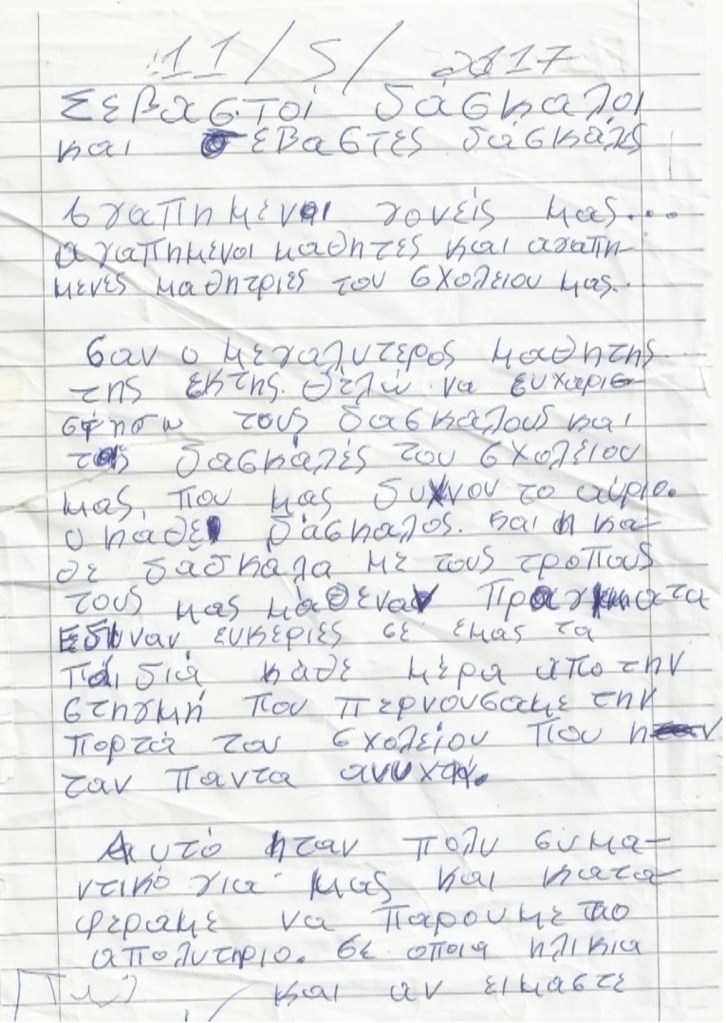 11/5/2017
Σεβαστοί δάσκαλοι
και σεβαστες δάσκάλς
Αγαπημενοι γονείς μας...
αγαπημενοι μαθητες και αγαπη-
μενες μαθητριες του σχολειου μας..
Σαν ο μεγαλυτερος μαθητης
της εκτης. θέλω να ευχαρισ-
στησω τους δασκαλους και
τις δασκάλές του σχολειου
μας, που μας δυχνουν το αύριο.
ο καθε δάσκαλος. και η κα-
θε δασκαλα με τους τροπους
τους μας μάθεναν πραγματα
Εδυναν ευκεριες σε εμας τα
παιδιά κάθε μέρα απο την
στηγμή που περνουσαμε την
πορτά του σχολείου που η
ταν παντα ανυχτή.
Αυτό ήταν πολυ συμα-
ντικό για μας και κατα-
φεραμε να παρουμε το
απολυτηριο. Σε οποια ηλικια
και αν ειμαστε